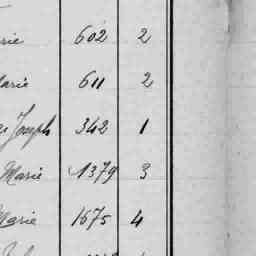 rie 602 2
Marie 611 2
Joseph 342 1
Marie 1379 3
Marie 1675 4